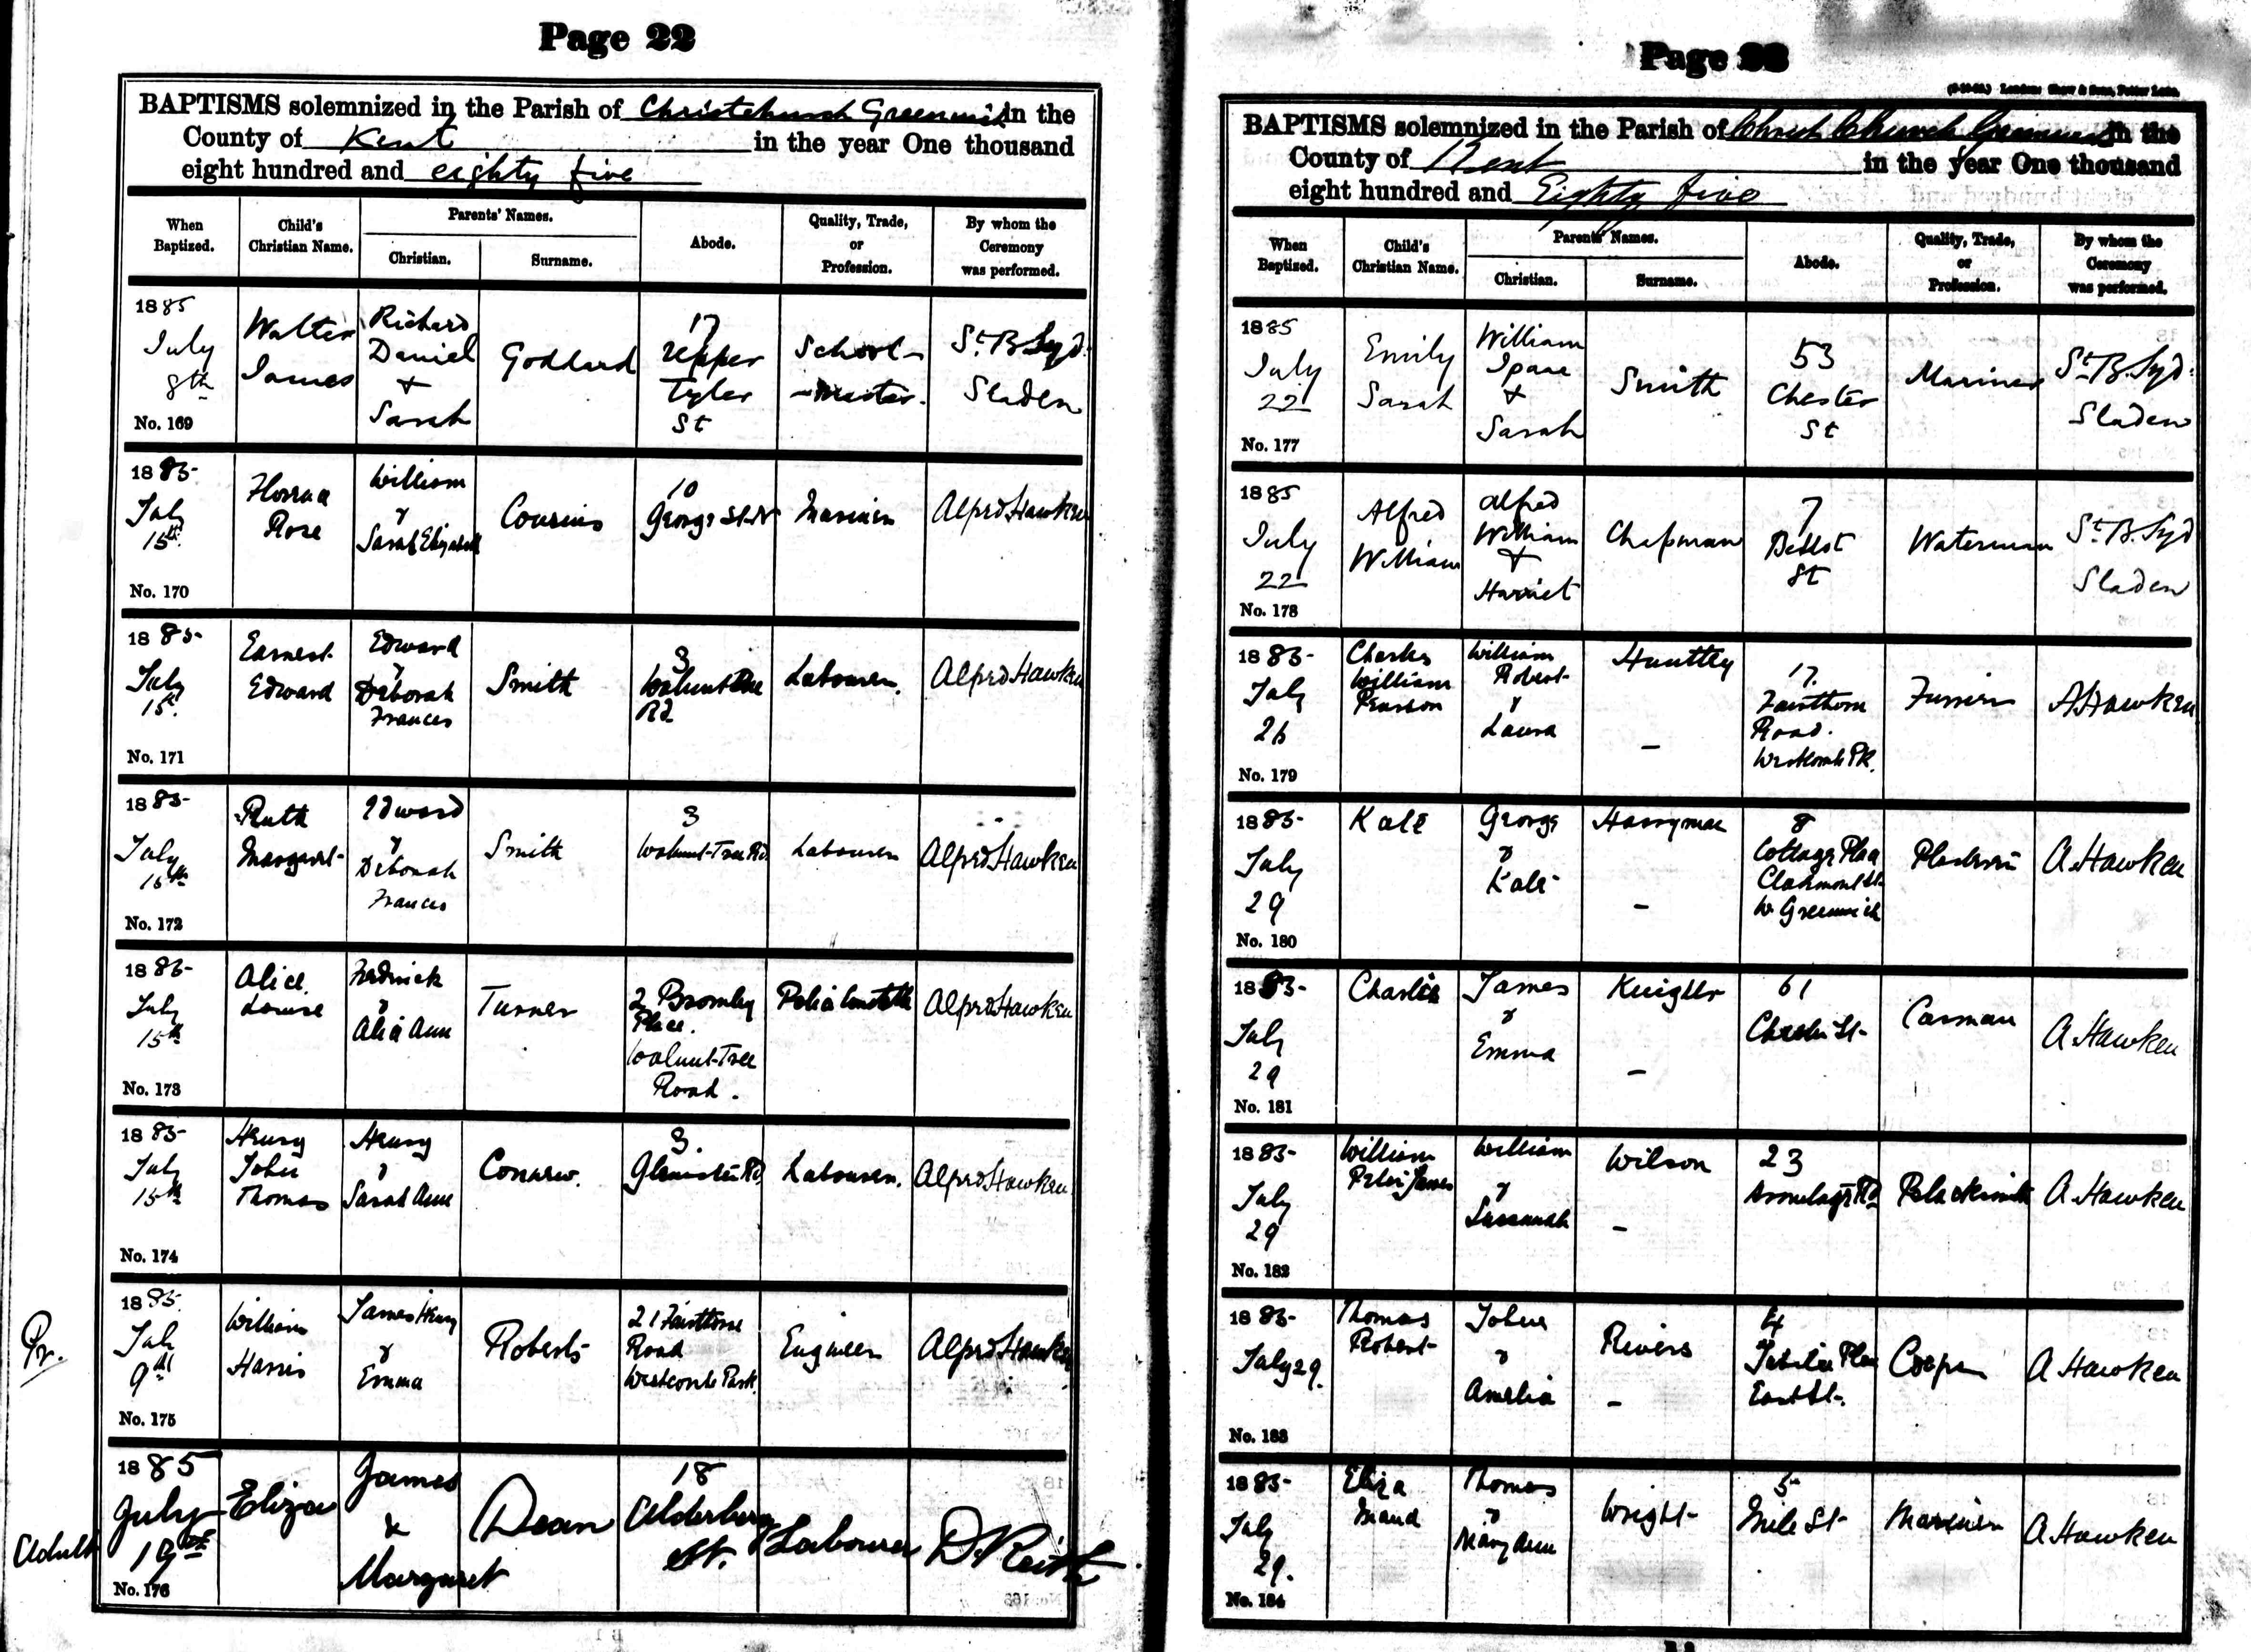 Page 22
BAPTISMS solemnized in the Parish of Christchurch Greenwich in the
County of Kent in the year One thousand
eight hundred and eighty five
When Baptized.
Child's Christian Name.
Parents' Names.
Christian.
Surname.
Abode.
Quality, Trade, or Profession.
By whom the Ceremony was performed.
1885
July
8th
No. 169
Walter
James
Richard
Daniel
+
Sarah
Goddard
17
Upper
Tyler
St
School-
-master.
St. B. Syd.
Sladen
1885
July
15th
No. 170
Rose
William
&
Sarah Elizabeth
Cousins
10
George St
Mariner
Alfred Hawken
1885
July
15th
No. 171
Earnest
Edward
Edward
&
Deborah
Frances
Smith
3
Walnut Tree
Rd
Labourer.
Alfred Hawken
1885
July
15th
No. 172
Ruth
Margaret
Edward
&
Deborah
Frances
Smith
3
Walnut-Tree Rd
Labourer
Alfred Hawken
1885
July
15th
No. 173
Alice
Louise
Fredrick
&
Alice Ann
Turner
2 Bromley
Place.
Walnut-Tree
Road.
Police Constable
Alfred Hawken
1885
July
15th
No. 174
Henry
John
Thomas
Henry
&
Sarah Ann
3.
Glenister Rd,
Labourer.
Alfred Hawken
Pr.
1885
July
9th
No. 175
William
Harris
James Henry
&
Emma
Roberts
21 Fairthorne
Road
Westcombe Park.
Engineer
Alfred Hawken
Adult
1885
July
19th
No. 176
Eliza
James
&
Margaret
Dean
18
Alderbery
St.
Labourer
D. Reith
Page 23
BAPTISMS solemnized in the Parish of Christ Church Greenwich in the
County of Kent in the year One thousand
eight hundred and Eighty five
When Baptized.
Child's Christian Name.
Parents' Names.
Christian.
Surname.
Abode.
Quality, Trade, or Profession.
By whom the Ceremony was performed.
1885
July
22
No. 177
Emily
Sarah
William
+
Sarah
Smith
53
Chester
St
Mariner
St. B. Syd.
Sladen
1885
July
22
No. 178
Alfred
William
Alfred
William
+
Harriet
Chapman
7
St
Waterman
St. B. Syd
Sladen
1885
July
26
No. 179
Charles
William
Pearson
William
Robert
&
Laura
Huntley
17.
Fairthorn
Road.
Westcombe Pk.
Furrier
A Hawken
1885
July
29
No. 180
Kate
George
&
Kate
Harryman
8
Cottage Place
Claremont St.
W. Greenwich
Plasterer
A. Hawken
1885
July
29
No. 181
Charles
James
&
Emma
Knight
61
Chester St
Carman
A. Hawken
1885
July
29
No. 182
William
Peter James
William
&
Sussanah
Wilson
23
Armitage Rd
Blacksmith
A. Hawken
1885
July 29.
No. 183
Thomas
Robert
John
&
Amelia
Rivers
4
Jubilee Place
East St.
Cooper
A Hawken
1885
July
29.
No. 184
Eliza
Maud
Thomas
&
Mary Ann
Wright
5
Mile St
Mariner
A Hawken